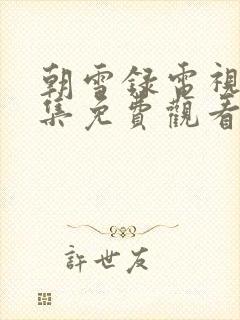 朝雪録電視
集免費觀看
許世友